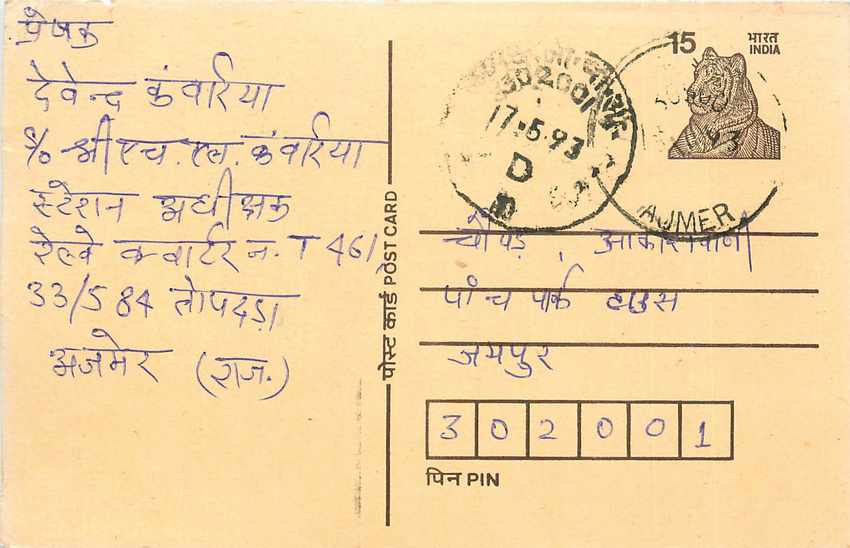 प्रेषक
देवेन्द्र कंवरिया
℅ श्री एच.एल. कंवरिया
स्टेशन अधीक्षक
रेल्वे क्वार्टर न. T 46/
33/584 तोपदड़ा
अजमेर (राज.)
पोस्ट कार्ड POST CARD
15
भारत
INDIA
302001
17.5.93
D
93
AJMER
चौपड़, आकाशवाणी
पांच पार्क हाउस
जयपुर
3 0 2 0 0 1
पिन PIN